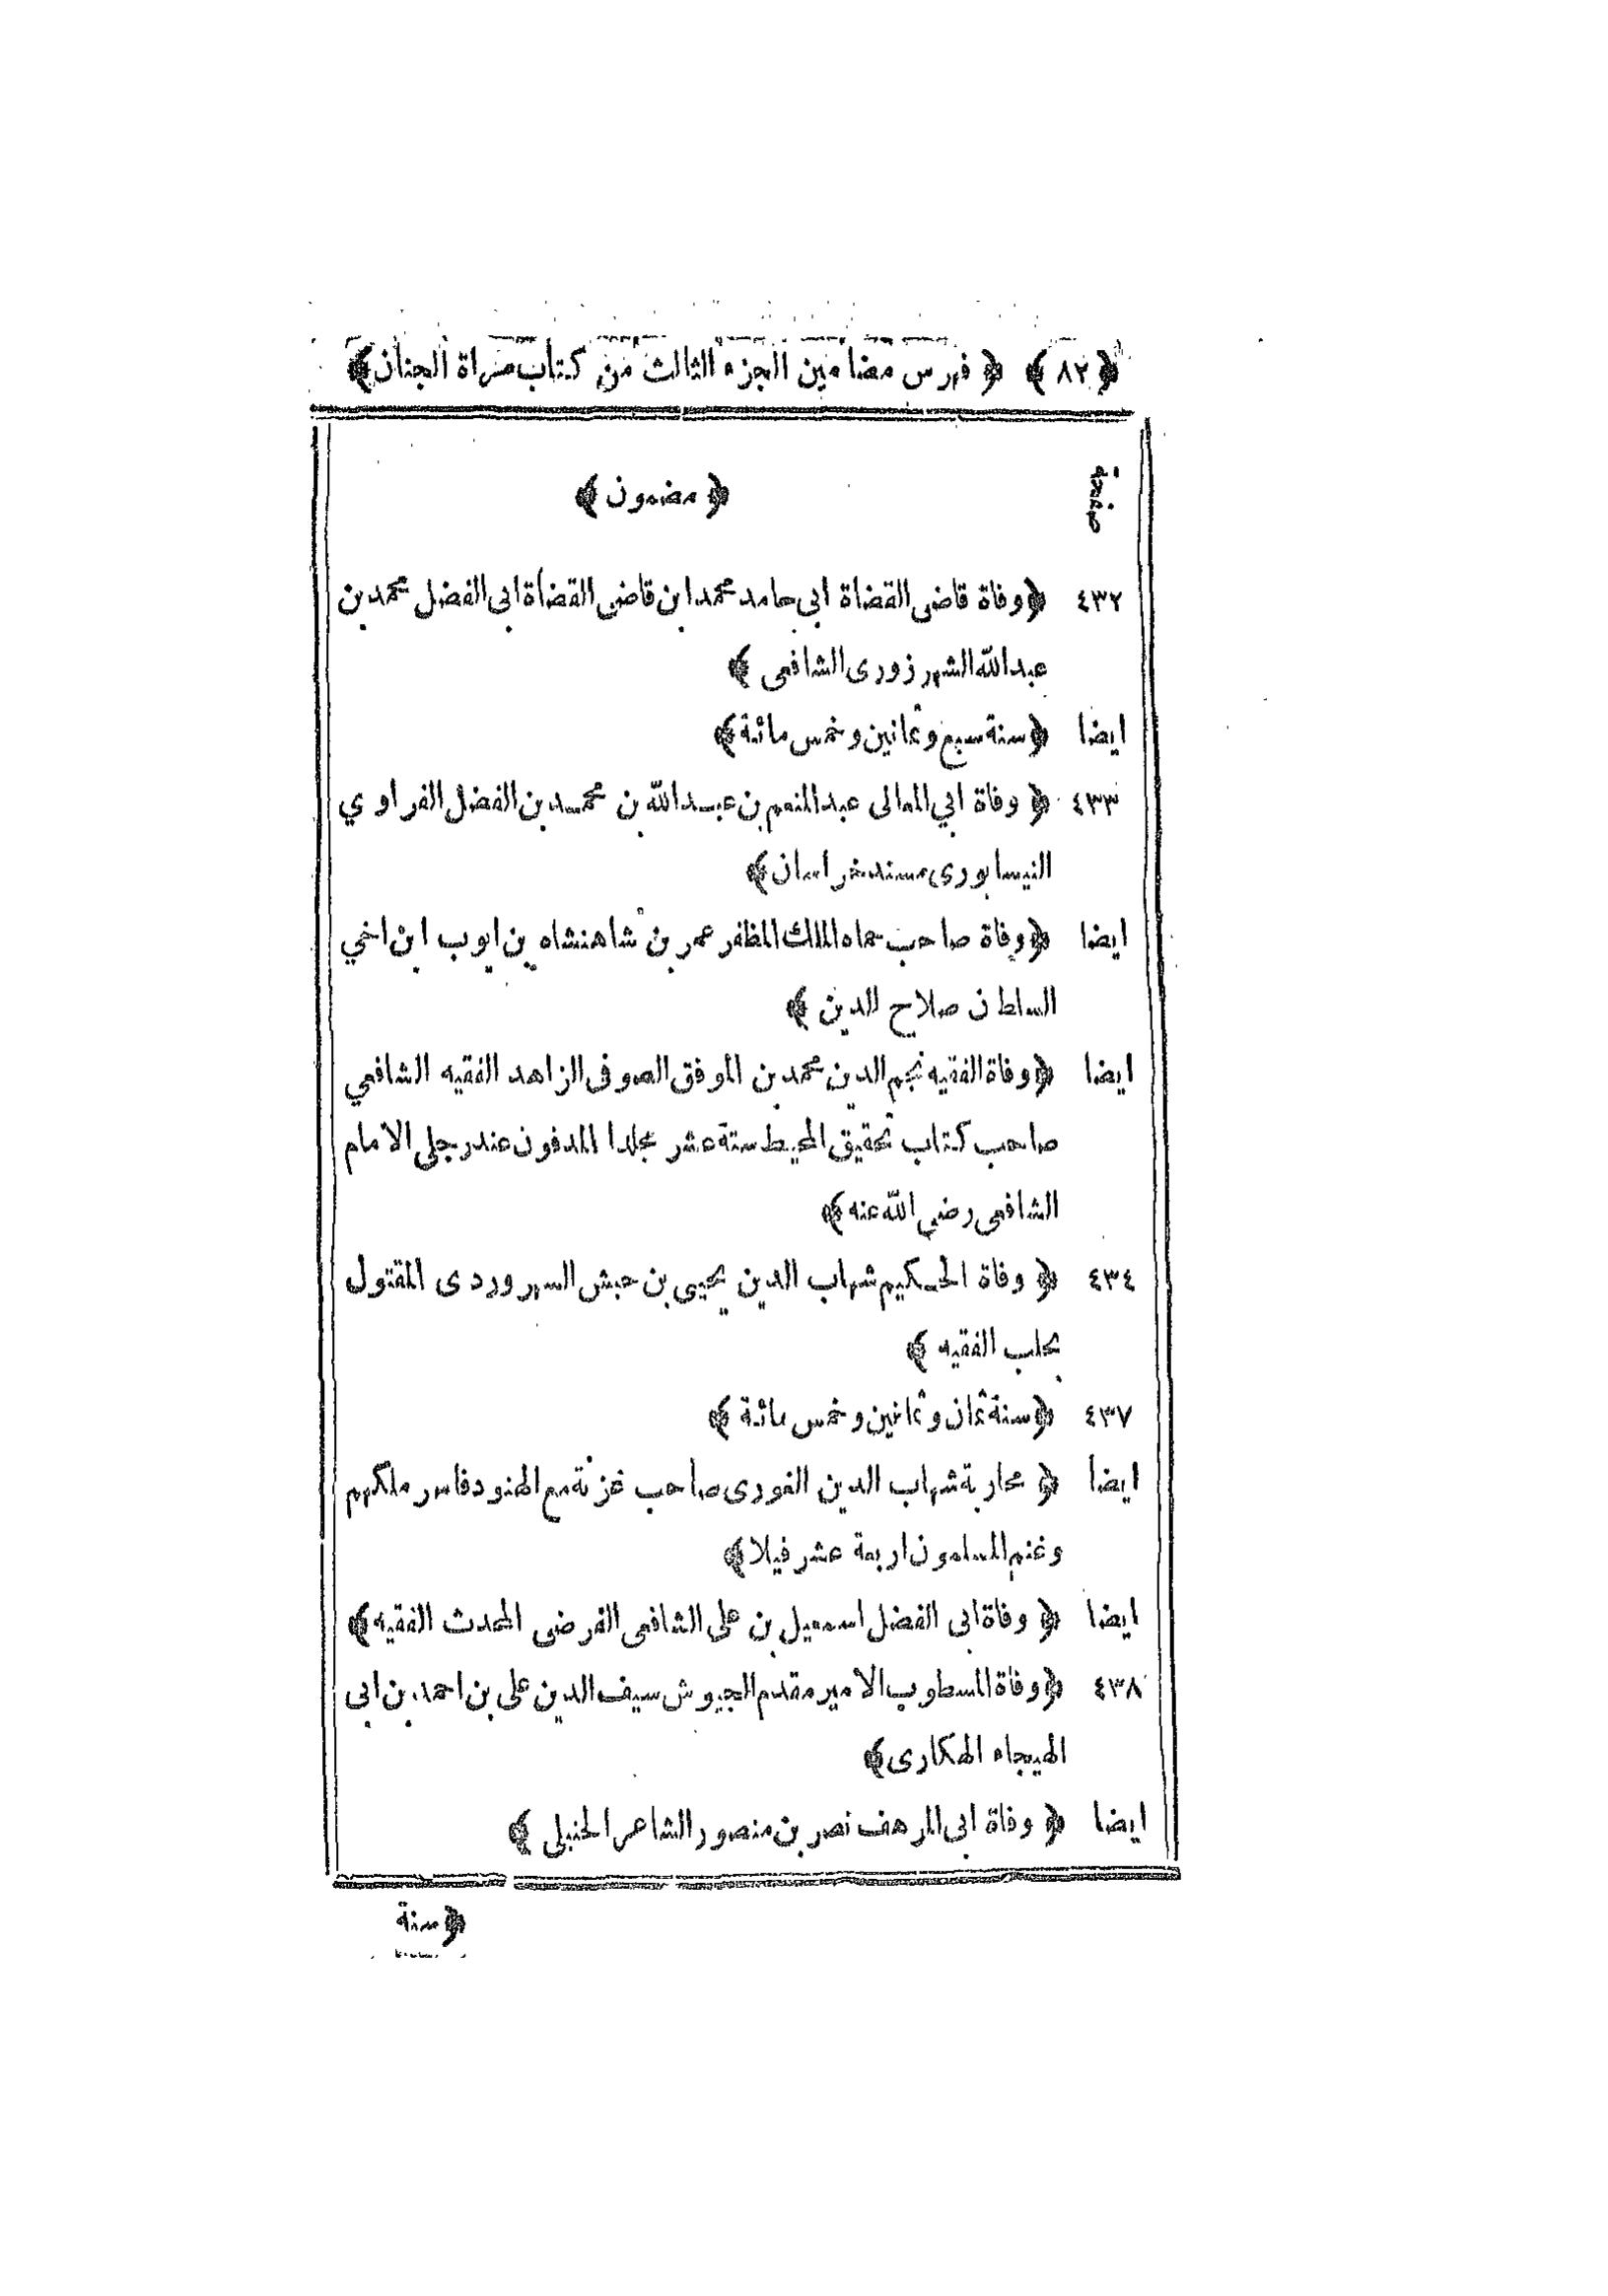 ﴿٨٢﴾ ﴿ فهرس مضامين الجزء الثالث من كتاب مرآة الجنان﴾
صفحة ﴿ مضمون ﴾
٤٣٢ ﴿وفاة قاضى القضاة ابى حامد محمد ابن قاضى القضاة ابى الفضل محمد بن
عبدالله الشهرزورى الشافعى ﴾
ايضا ﴿سنة سبع وثمانين وخمس مائة﴾
٤٣٣ ﴿ وفاة ابي المعالى عبدالمنعم بن عبدالله بن محمد بن الفضل الفراوي
النيسابورى مسند خراسان﴾
ايضا ﴿وفاة صاحب حماه الملك المظفر عمر بن شاهنشاه بن ايوب ابن اخي
السلطان صلاح الدين ﴾
ايضا ﴿وفاة الفقيه نجم الدين محمد بن الموفق الصوفى الزاهد الفقيه الشافعي
صاحب كتاب تحقيق المحيط ستة عشر مجلدا المدفون عند رجلى الامام
الشافعى رضي الله عنه﴾
٤٣٤ ﴿ وفاة الحكيم شهاب الدين يحيى بن حبش السهروردى المقتول
بحلب الفقيه ﴾
٤٣٧ ﴿سنة ثمان وثمانين وخمس مائة ﴾
ايضا ﴿ محاربة شهاب الدين الغورى صاحب غزنة مع الهنود فاسر ملكهم
وغنم المسلمون اربعة عشر فيلا﴾
ايضا ﴿ وفاة ابى الفضل اسمعيل بن على الشافعى الفرضى المحدث الفقيه﴾
٤٣٨ ﴿وفاة المسطوب الامير مقدم الجيوش سيف الدين على بن احمد بن ابى
الهيجاء الهكارى﴾
ايضا ﴿ وفاة ابى المرهف نصر بن منصور الشاعر الحنبلى ﴾
﴿سنة